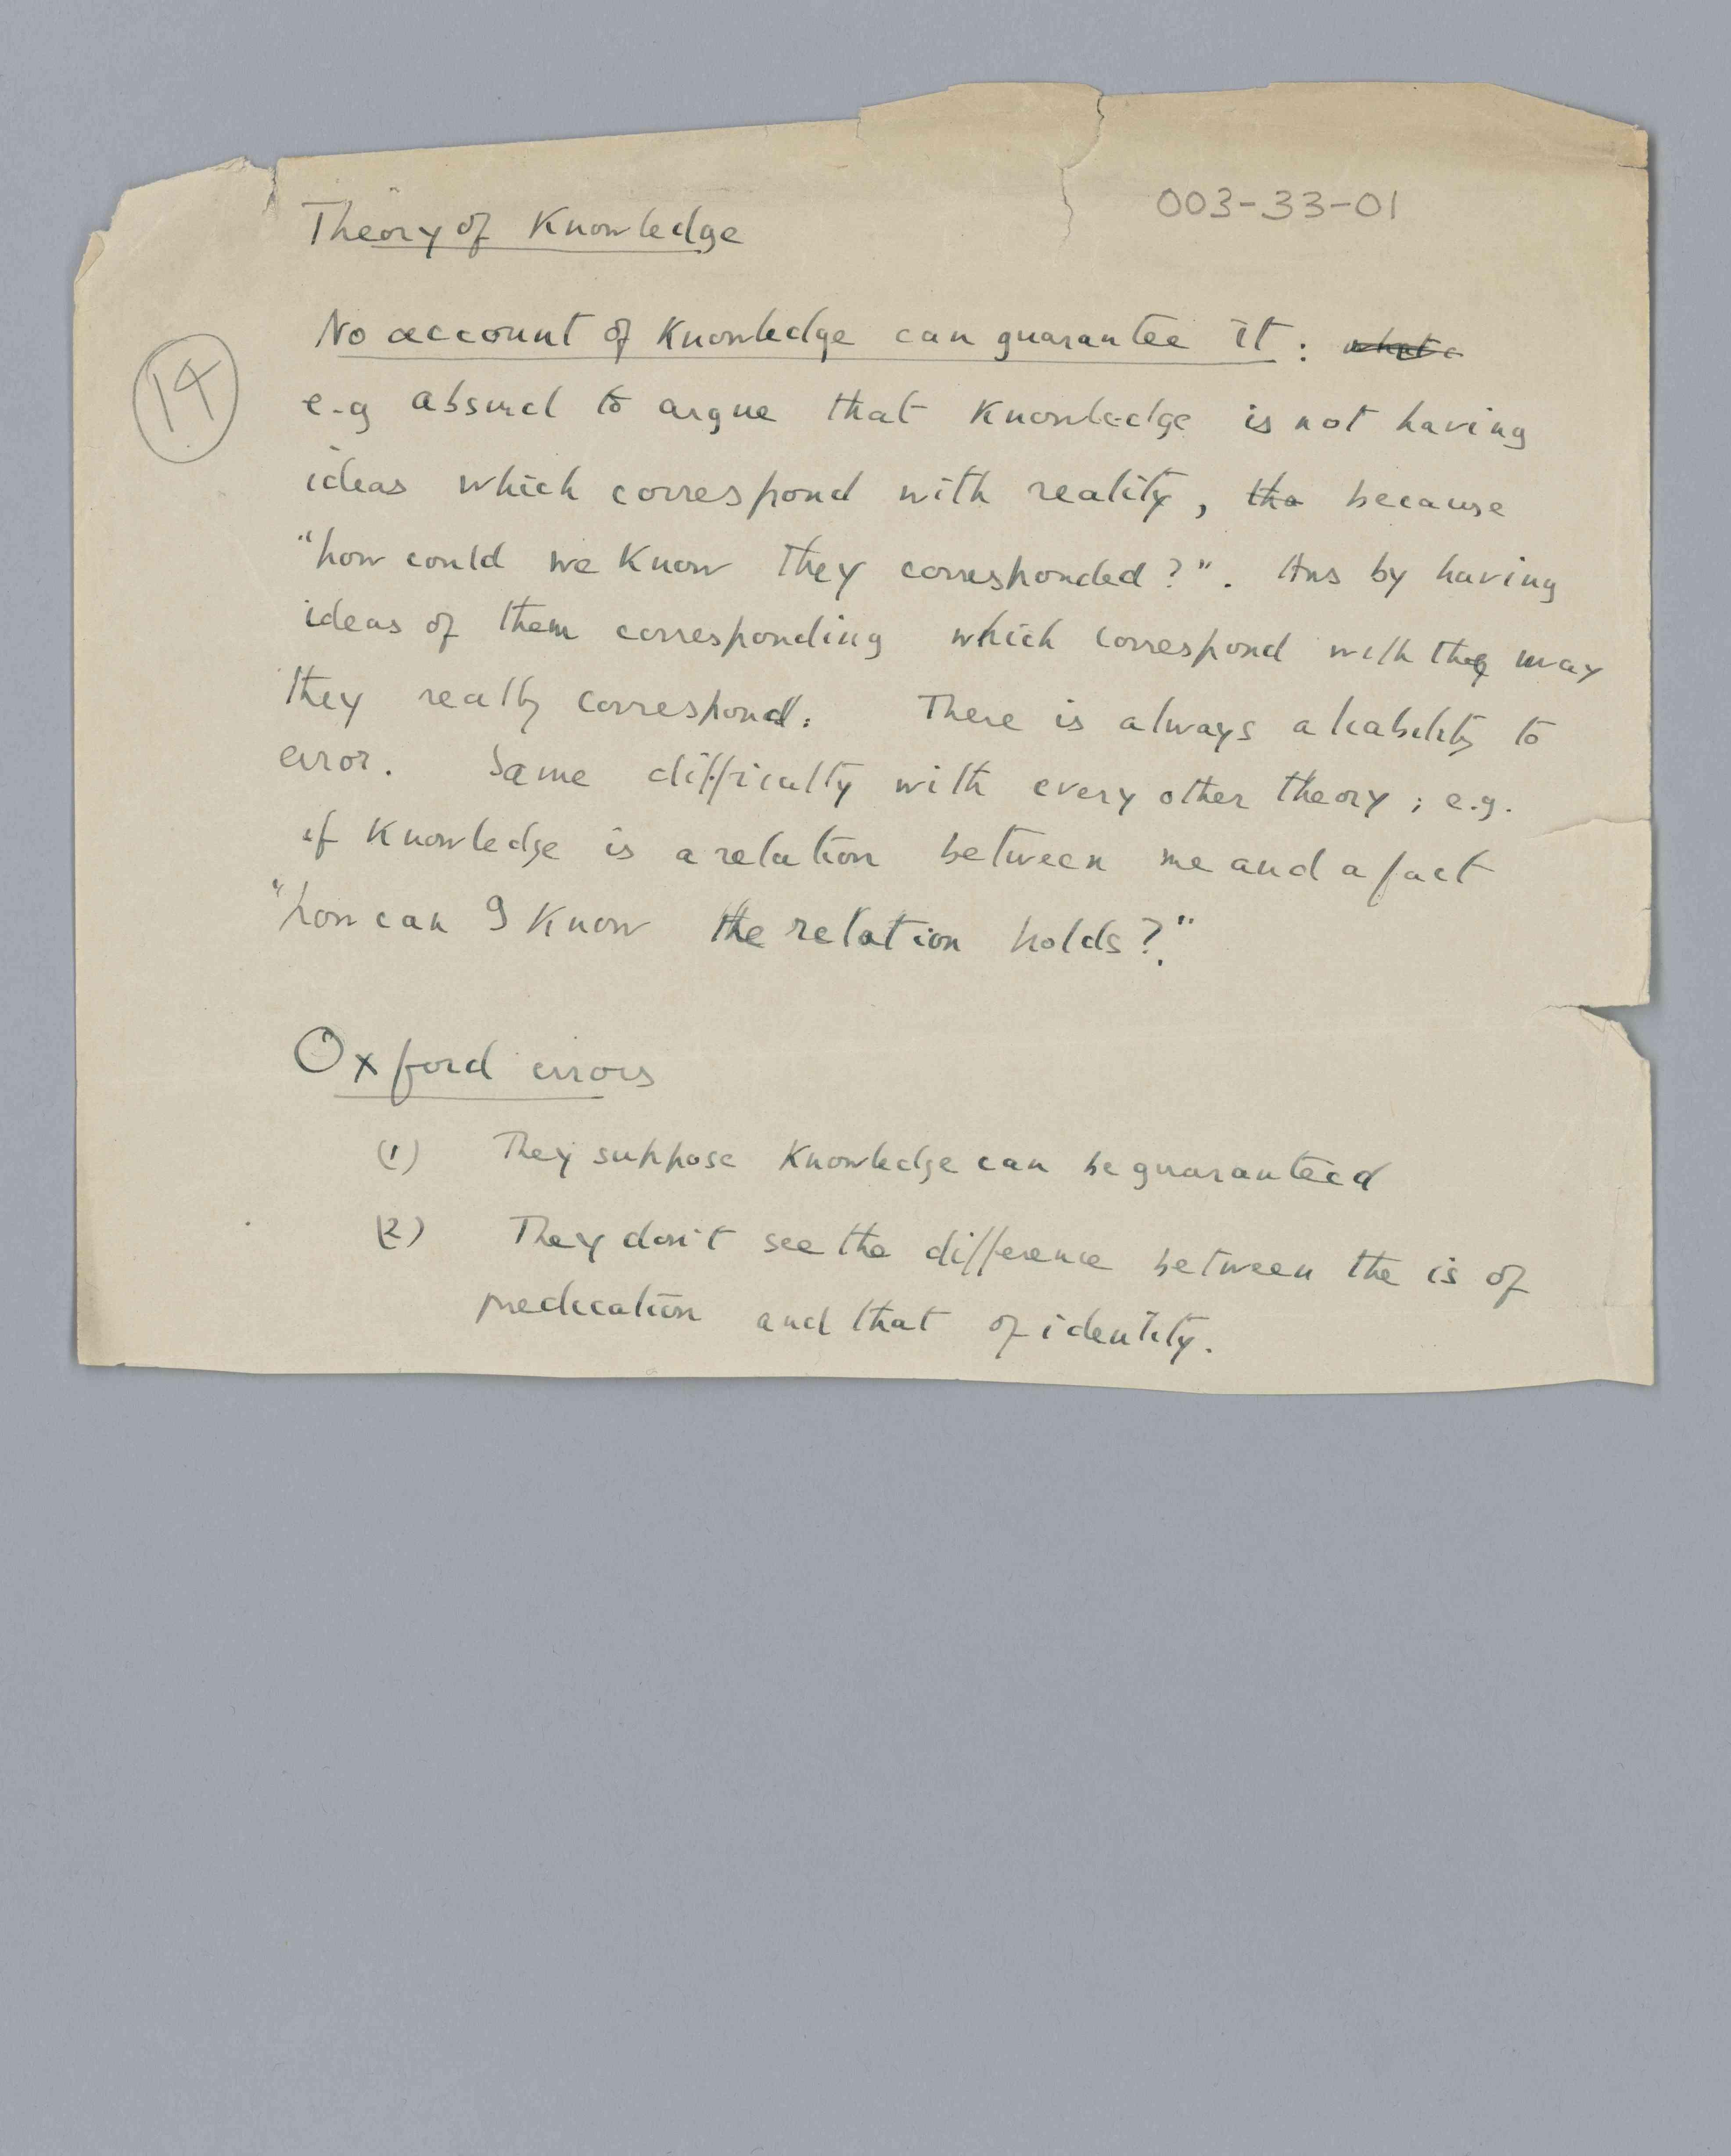 003-33-01
Theory of Knowledge
No account of Knowledge can guarantee it :
14
e.g absurd to argue that Knowledge is not having
ideas which correspond with reality, tha because
"how could we know they corresponded?". Ans by having
ideas of them corresponding which correspond with the way
they really correspond. There is always a liability to
error. Same difficulty with every other theory ; e.g.
if Knowledge is a relation between me and a fact
"how can I know the relation holds?"
Oxford errors
(1) They suppose Knowledge can be guaranteed
(2) They don't see the difference between the is of
predication and that of identity.